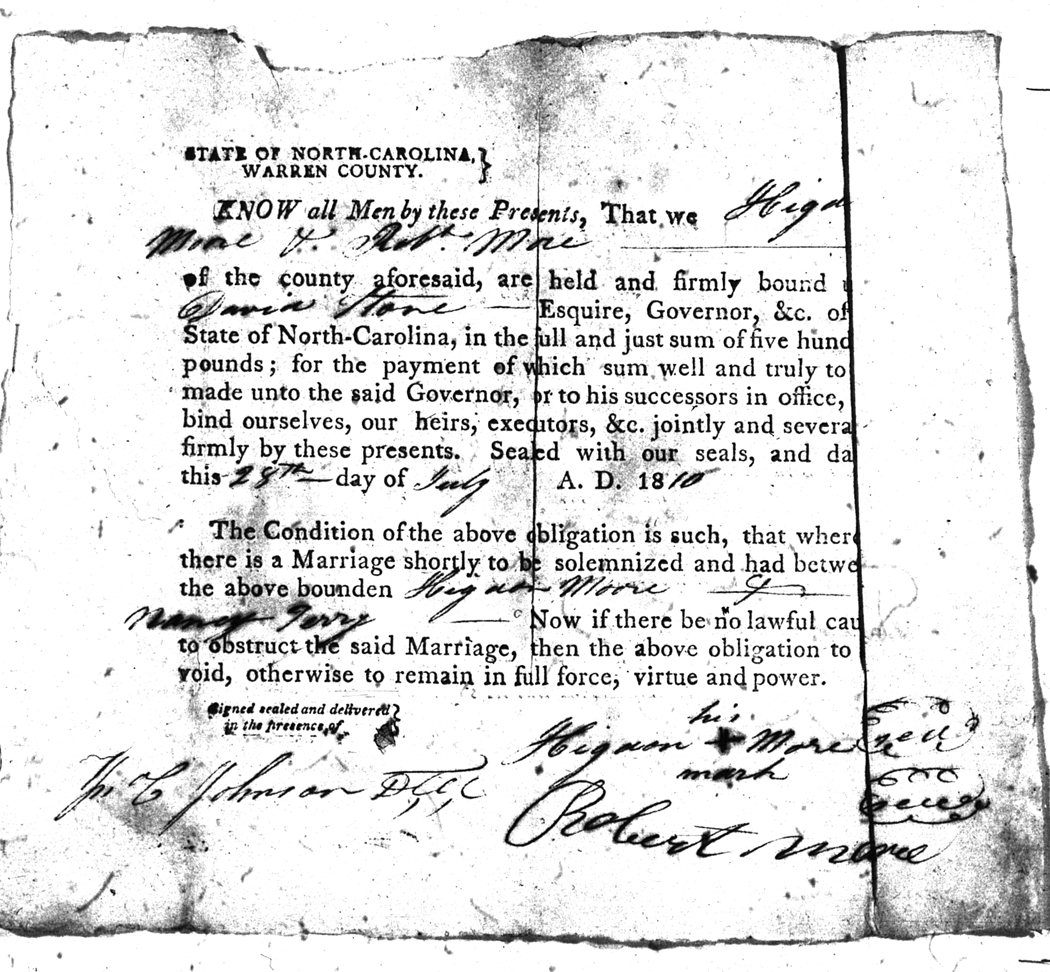 STATE OF NORTH-CAROLINA,
WARREN COUNTY.
KNOW all Men by these Presents, That we Higd
Moore & Robt. More
of the county aforesaid, are held and firmly bound
David Stone Esquire, Governor, &c. of
State of North-Carolina, in the full and just sum of five hund
pounds; for the payment of which sum well and truly to
made unto the said Governor, or to his successors in office,
bind ourselves, our heirs, executors, &c. jointly and severa
firmly by these presents. Sealed with our seals, and da
this 28th day of July A. D. 1810
The Condition of the above obligation is such, that where
there is a Marriage shortly to be solemnized and had betwe
the above bounden Higdon Moore &
Nancy Terry Now if there be no lawful cau
to obstruct the said Marriage, then the above obligation to
void, otherwise to remain in full force, virtue and power.
Signed sealed and delivered
in the presence of
his
Higdon + More seal
mark
Jn C Johnson D,C,C
Robert Moore seal